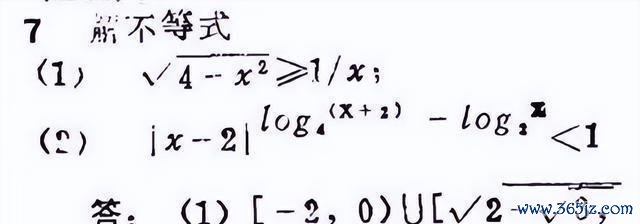 7 解不等式
(1) √4－x²≥1/x;
(2) |x－2|^log₄(x+2) － log₂x<1
答: (1) [－2, 0)∪[√2－√
www.365jz.com